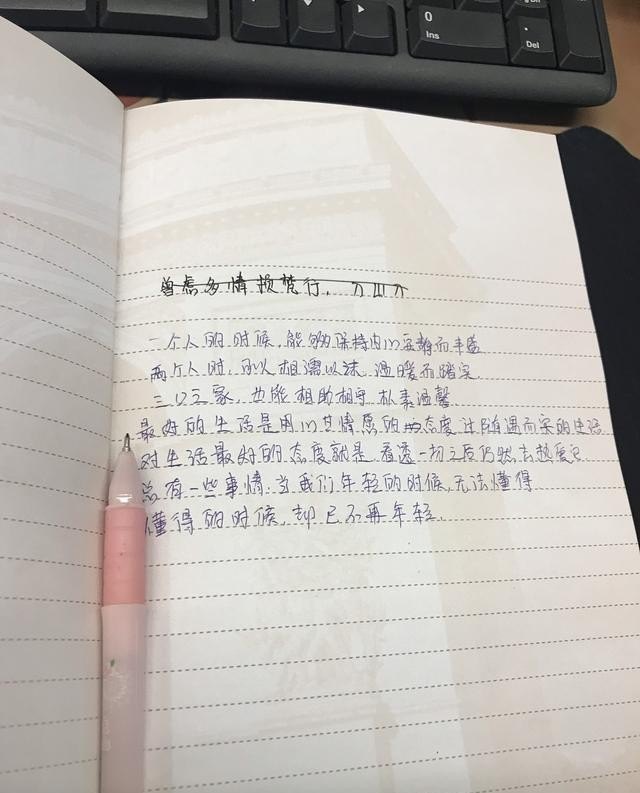 0
Ins
.
Del
曾虑多情损梵行，入山又
一个人的时候，能够保持内心安静而丰盛
两个人时，可以相濡以沫，温暖而踏实
三口之家，也能相助相守朴素温馨
最好的生活是用心甘情愿的态度过随遇而安的生活
对生活最好的态度就是看透一切之后仍然去热爱它
总有一些事情，当我们年轻的时候，无法懂得
懂得的时候，却已不再年轻.